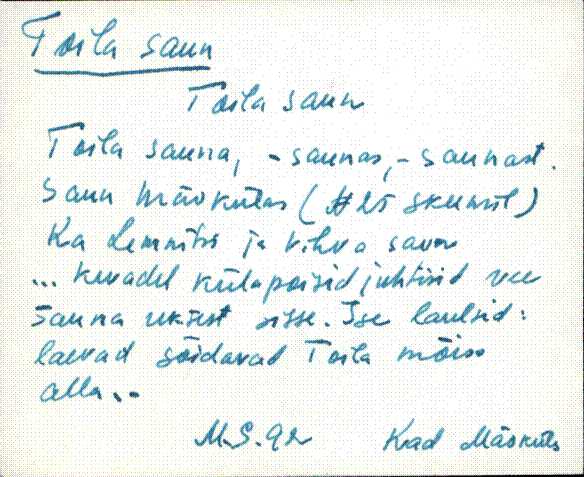 Toila saun
Toila saun
Toila sauna, -saunas, -saunast.
Saun Mäokülas (#25 skeemil)
Ka Lemmitis ja Kihva saun
... kevadel külapoisid juhtisid vee
sauna uksest sisse. Ise laulsid:
laevad sõidavad Toila mõisa
alla...
M.S. 92 Kad Mäoküla